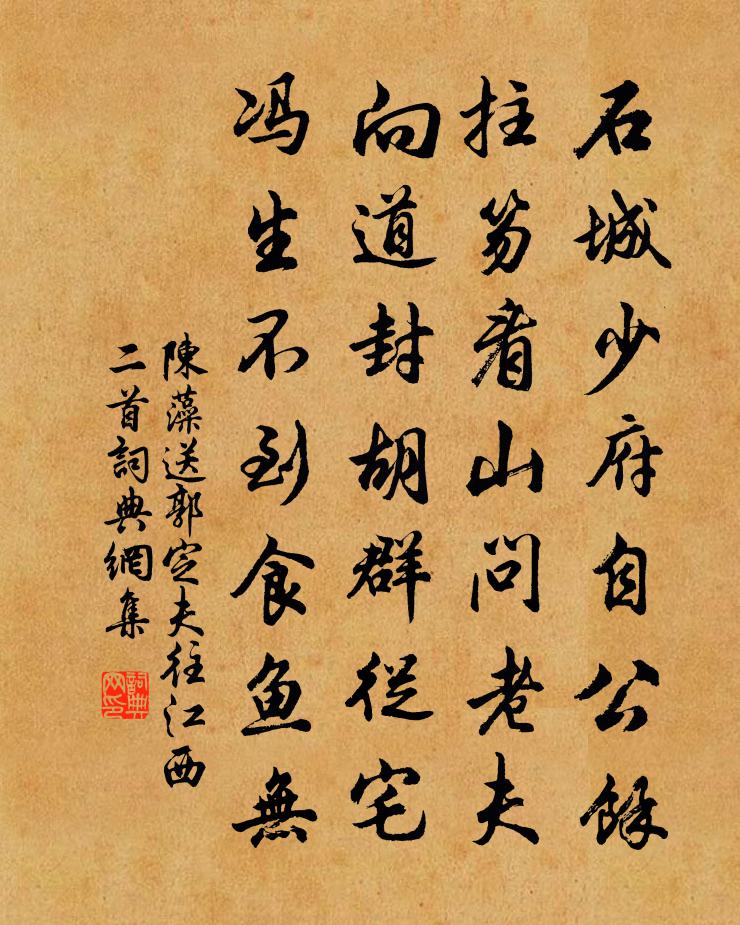 石城少府自公餘
拄笏看山問老夫
向道封胡群從宅
冯生不到食鱼無
陳藻送郭定夫往江西
二首詞典網集
詞典
网印